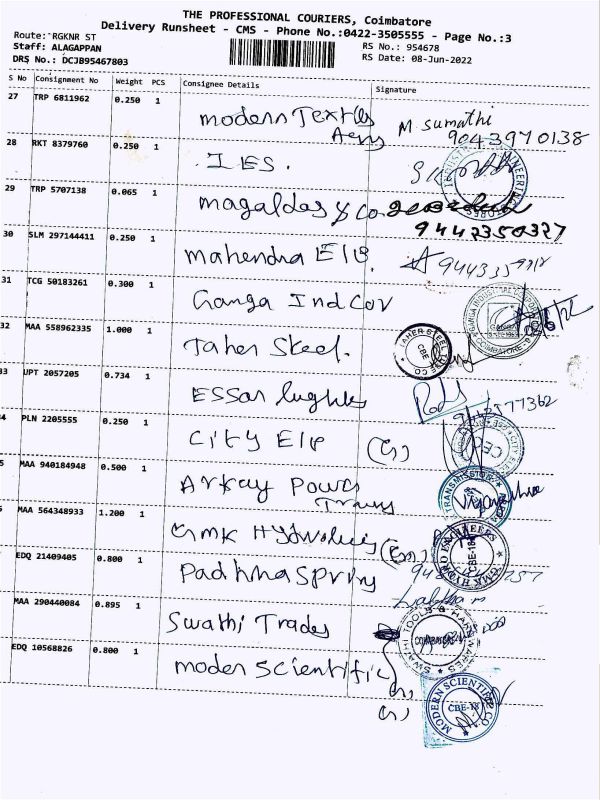 THE PROFESSIONAL COURIERS, Coimbatore
Delivery Runsheet - CMS - Phone No.:0422-3505555 - Page No.:3
Route: RGKNR ST
Staff: ALAGAPPAN
DRS No.: DCJB95467803
RS No.: 954678
RS Date: 08-Jun-2022
S No Consignment No Weight PCS Consignee Details Signature
27 TRP 6811962 0.250 1 modern Textiles M Sumathi
9043970138
28 RKT 8379760 0.250 1 IES.
29 TRP 5707138 0.065 1 magaldas & co
9442350327
30 SLM 297144411 0.250 1 mahendra Ele
31 TCG 50183261 0.300 1 Ganga Ind Cor
32 MAA 558962335 1.000 1 Taher Steel. TAHER STEEL CBE
33 UPT 2057205 0.734 1 Essar
4 PLN 2205555 0.250 1 City Ele (G)
5 MAA 940184948 0.500 1 Arkay Power TRANSMISSION
Trans
MAA 564348933 1.200 1 GMK Hydraulics GMK HYDRO ENGINEERS CBE-18
EDQ 21409405 0.800 1 Padhma Spring
MAA 290440084 0.895 1 Swathi Trades SWATHI TOOLS & HARDWARES
EDQ 10568826 0.800 1 moder Scientific MODERN SCIENTIFIC CO CBE-18